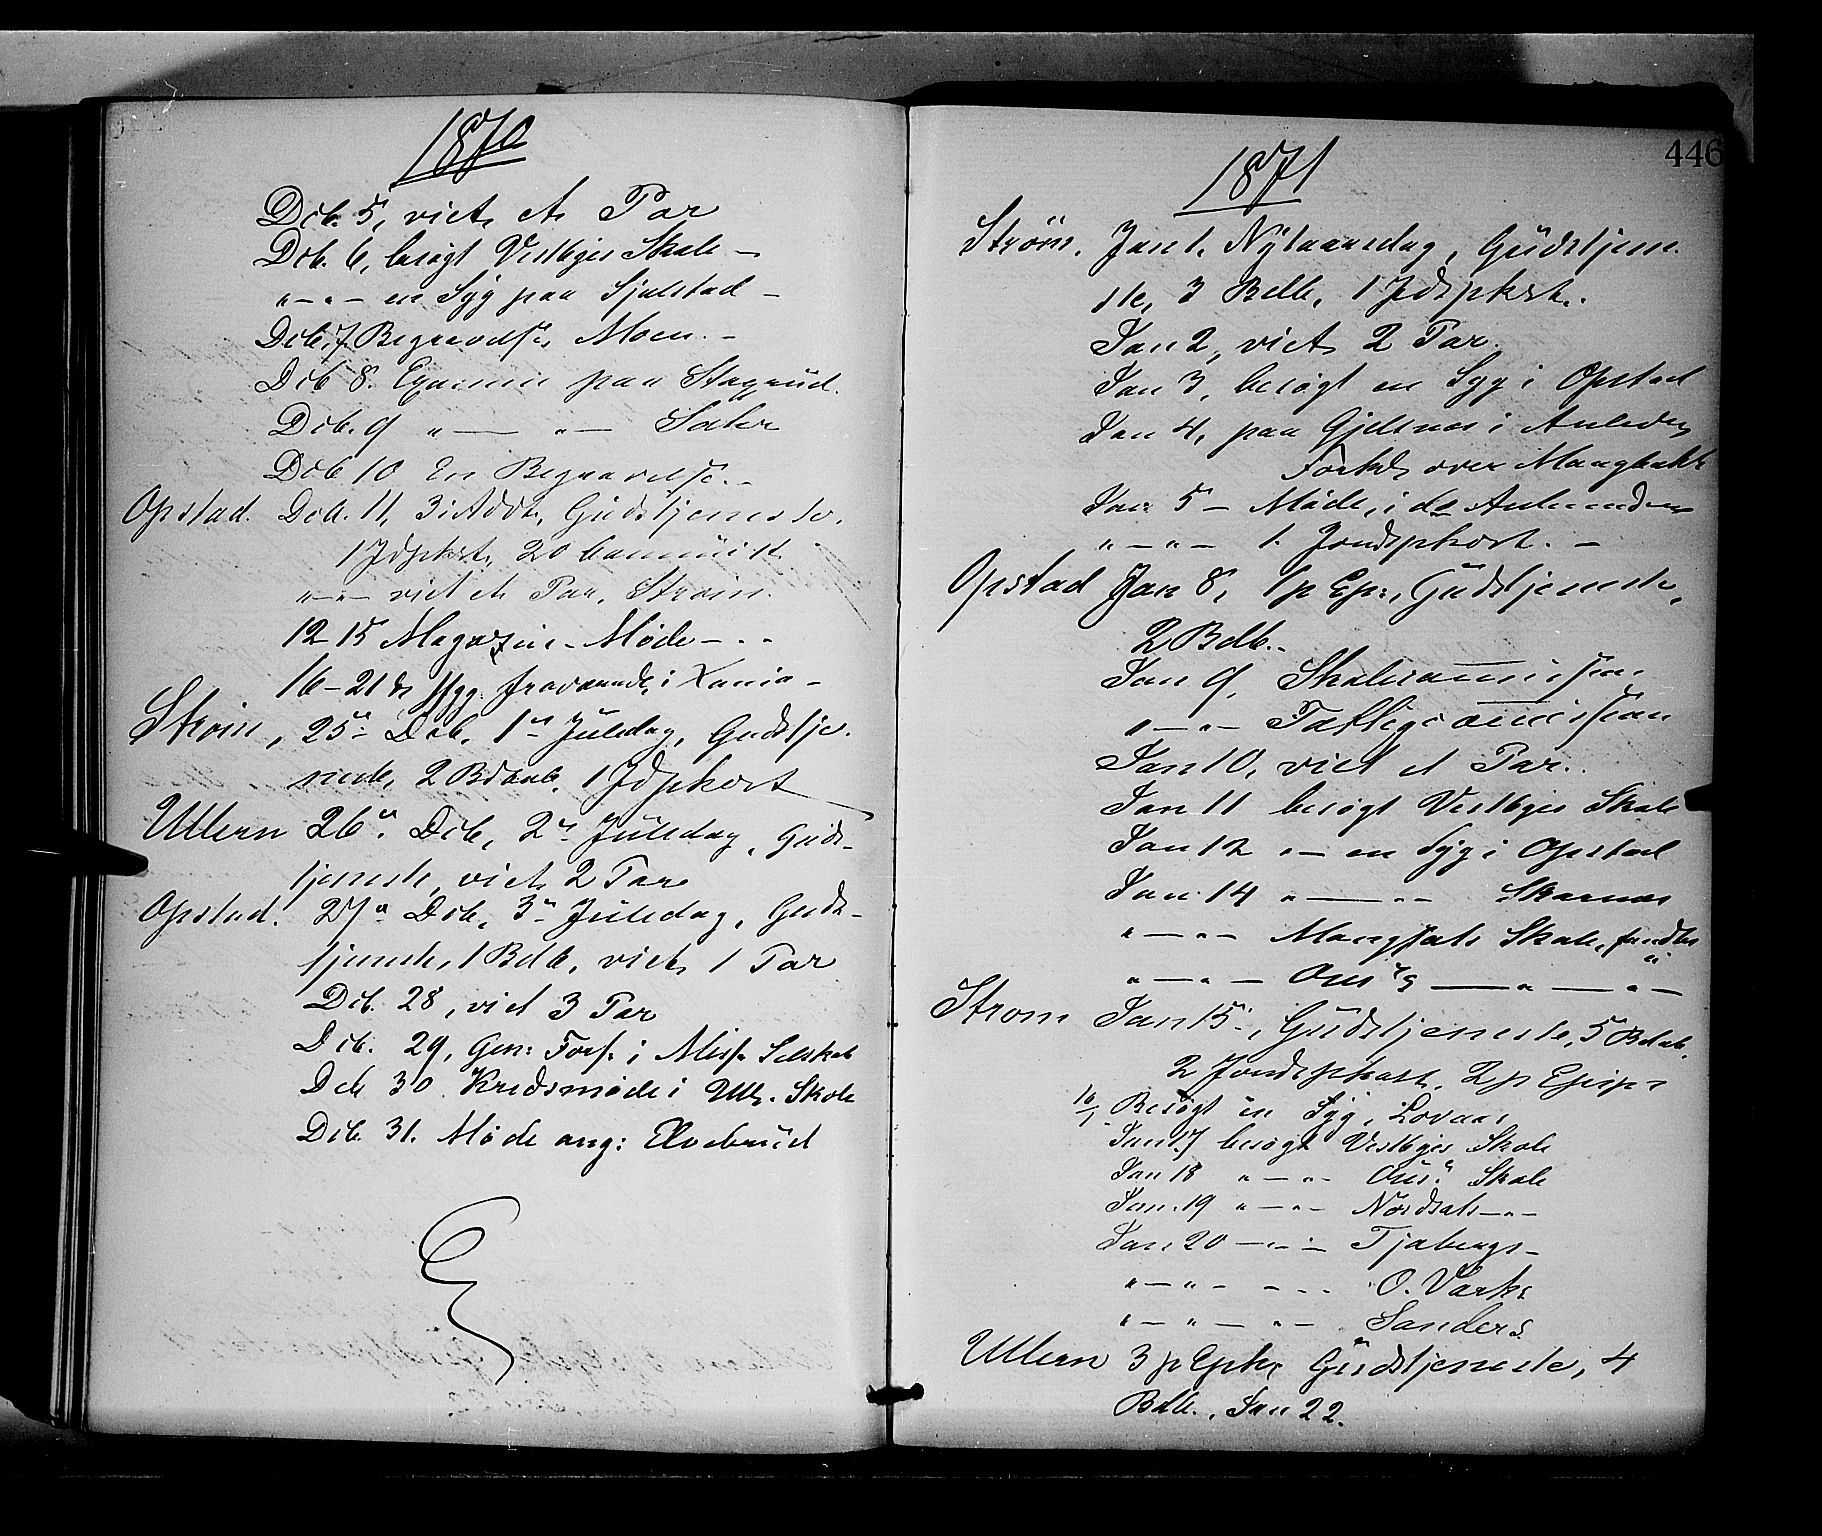 1870
Dcb. 5, viet et Par
Dcb. 6, besøgt Vestbyes Skole –
" – " – en Syg paa Sjulstad –
Dcb. 7. Begravelse, Moen. –
Dcb 8. Examen paa Stagrud.
Dcb. 9 " — " — Sæter
Dcb 10 En Begravelse. –
Opstad. Dcb. 11, 3 i Advt., Gudstjeneste.
1 Jdpkst., 20 Communik
" – " – viet et Par, Strøm.
12–15 Magazin-Møde – " –
16–21 fraværende i Xania –
Strøm, 25de Dcb. 1ste Juledag, Gudstje-
neste, 2 Bdaab, 1 Jdpkost
Ullern 26de Dcb, 2den Juledag, Guds-
tjeneste, viet 2 Par
Opstad. 27de Dcb, 3die Juledag, Guds-
tjeneste, 1 Bdb, viet 1 Par
Dcb. 28, viet 3 Par
Dcb. 29, Gen: Fors. i Miss. Selskab
Dcb 30. Kredsmøde i Ull. Skole
Dcb. 31. Møde ang: Elvebrud
446
1871
Strøm. Jan 1. Nytaarsdag, Gudstjene-
ste, 3 Bdb, 1 Jdspkst.
Jan 2, viet 2 Par.
Jan 3, besøgt en Syg i Opstad
Jan 4, paa Gjelsnæs i Anledn
over
Jan 5 – Møde, i da
" – " – 1. Jondspkost. –
Opstad Jan 8, 1 p Ep:, Gudstjeneste,
2 Bdb.
Jan 9, Skolecommission
" – " – Fattigcommission
Jan 10, viet et Par.
Jan 11 besøgt Vestbyes Skole
Jan 12 " – en Syg i Opstad
Jan. 14 " — " – Skarnæs
" – " – Skole,
" – " – Ous's — " — " –
Strøm Jan 15, Gudstjeneste, 5 Bdaab,
2 Jondspkost. 2 p Epip:
16/1 Besøgt en Syg, Lovaas
Jan 17 besøgt Vestbyes Skole
Jan 18 " – " – Ous's Skole
Jan. 19 " – " – Nordsæt – " –
Jan 20 – " – Tjabergs –
" – " – – – O. Varks
" – " – " – Sanders
Ullern 3 p Eph, Gudstjeneste, 4
Bdb., Jan 22.